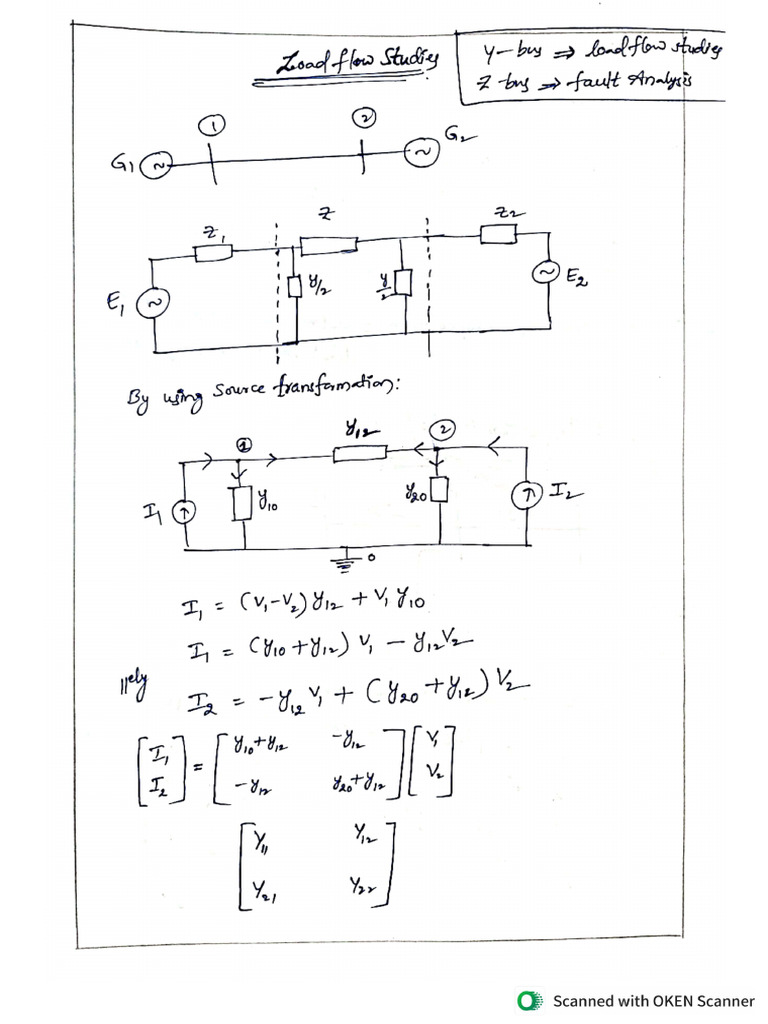 Load flow Studies
Y-bus ⇒ load flow studies
Z-bus ⇒ fault Analysis
① ②
G₁ ~ ~ G₂
Z₁ Z Z₂
E₁ ~ y/2 y/2 ~ E₂
By using Source transformation:
① y₁₂ ②
I₁ y₁₀ y₂₀ I₂
0
I₁ = (V₁-V₂) y₁₂ + V₁ y₁₀
I₁ = (y₁₀ + y₁₂) V₁ - y₁₂V₂
||ely I₂ = -y₁₂ V₁ + (y₂₀ + y₁₂) V₂
[I₁ I₂] = [y₁₀+y₁₂ -y₁₂ -y₁₂ y₂₀+y₁₂] [V₁ V₂]
[Y₁₁ Y₁₂
Y₂₁ Y₂₂]
Scanned with OKEN Scanner